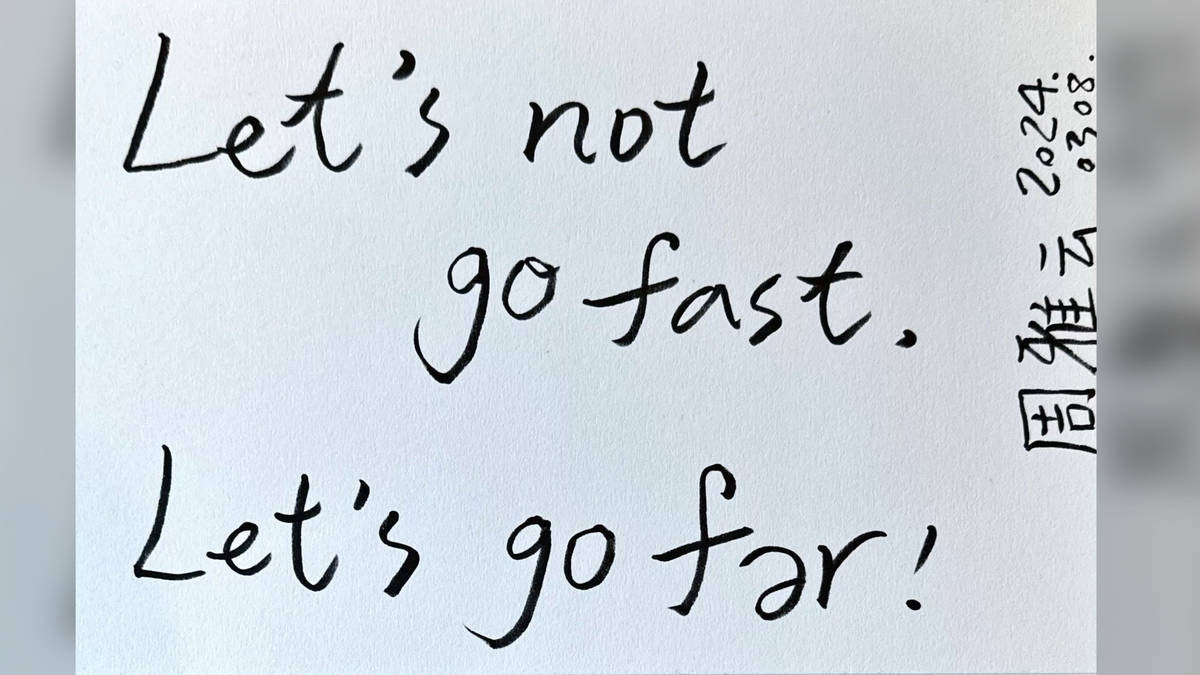 Let's not
go fast.
Let's go far!
周雅云 2024.
03.08.